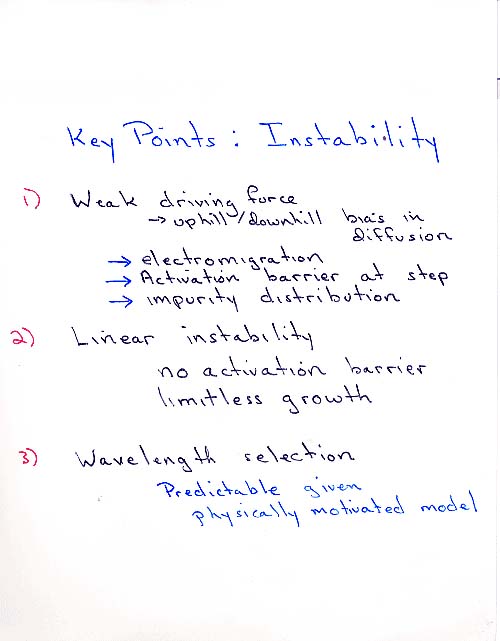 Key Points: Instability
1) Weak driving force
→ uphill/downhill bias in
diffusion
→ electromigration
→ Activation barrier at step
→ impurity distribution
2) Linear instability
no activation barrier
limitless growth
3) Wavelength selection
Predictable given
physically motivated model